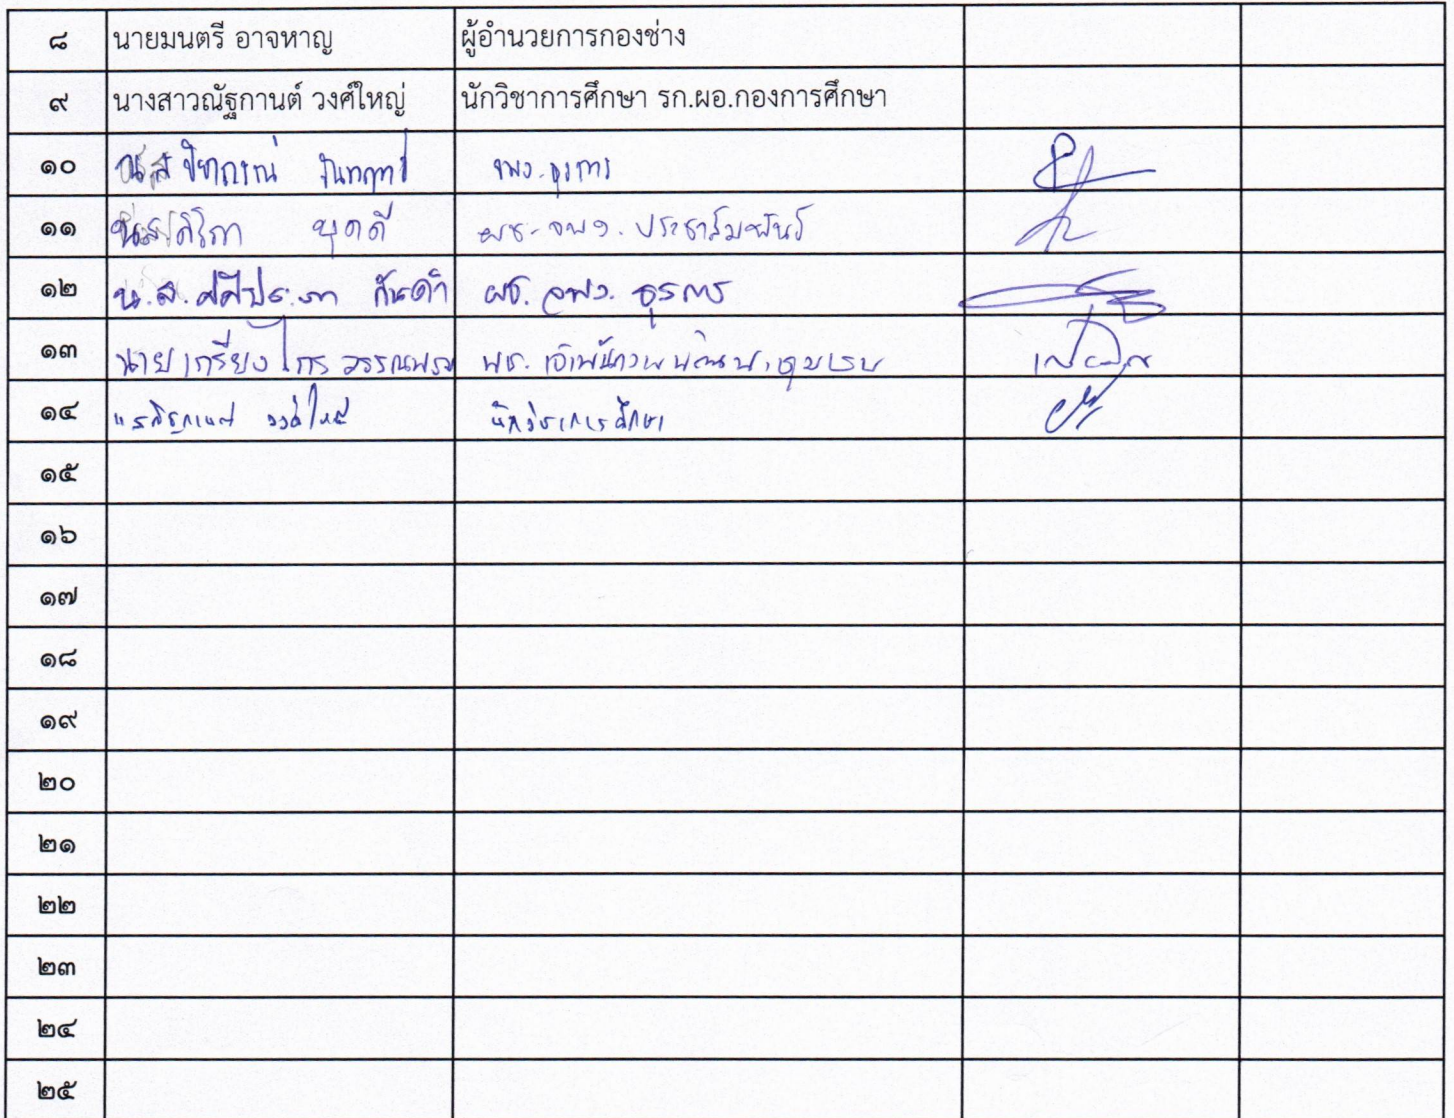 ๘ นายมนตรี อาจหาญ ผู้อำนวยการกองช่าง
๙ นางสาวณัฐกานต์ วงศ์ใหญ่ นักวิชาการศึกษา รก.ผอ.กองการศึกษา
๑๐ น.ส จพง.ธุรการ
๑๑ น.ส ศิริภา พุดดี ผช. จพง. ประชาสัมพันธ์
๑๒ น.ส. ศศิประภา กันคำ ผช. จพง. ธุรการ
๑๓ นาย เกรียงไกร วรรณพรม ผช. เจ้าพนักงาน
๑๔ วงศ์ใหญ่ นักวิชาการศึกษา
๑๕
๑๖
๑๗
๑๘
๑๙
๒๐
๒๑
๒๒
๒๓
๒๔
๒๕